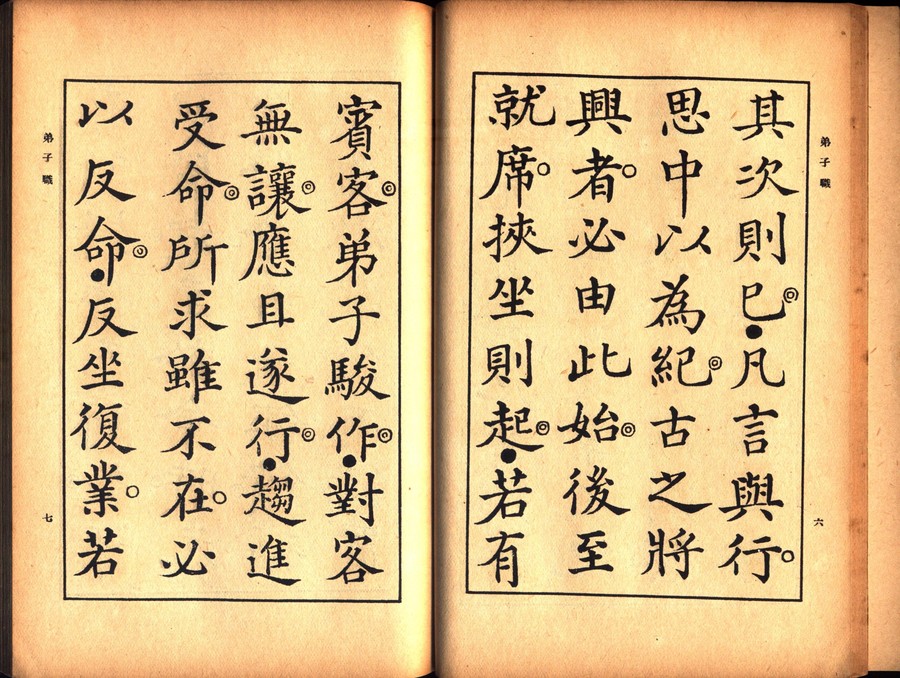 弟子職
六
其次則已◎●凡言與行○
思中以為紀◎古之將
興者○必由此始◎後至
就席○挾坐則起◎●若有
賓客◎弟子駿作◎●對客
無讓◎應且遂行◎●趨進
受命◎所求雖不在○必
以反命◎●反坐復業○若
弟子職
七